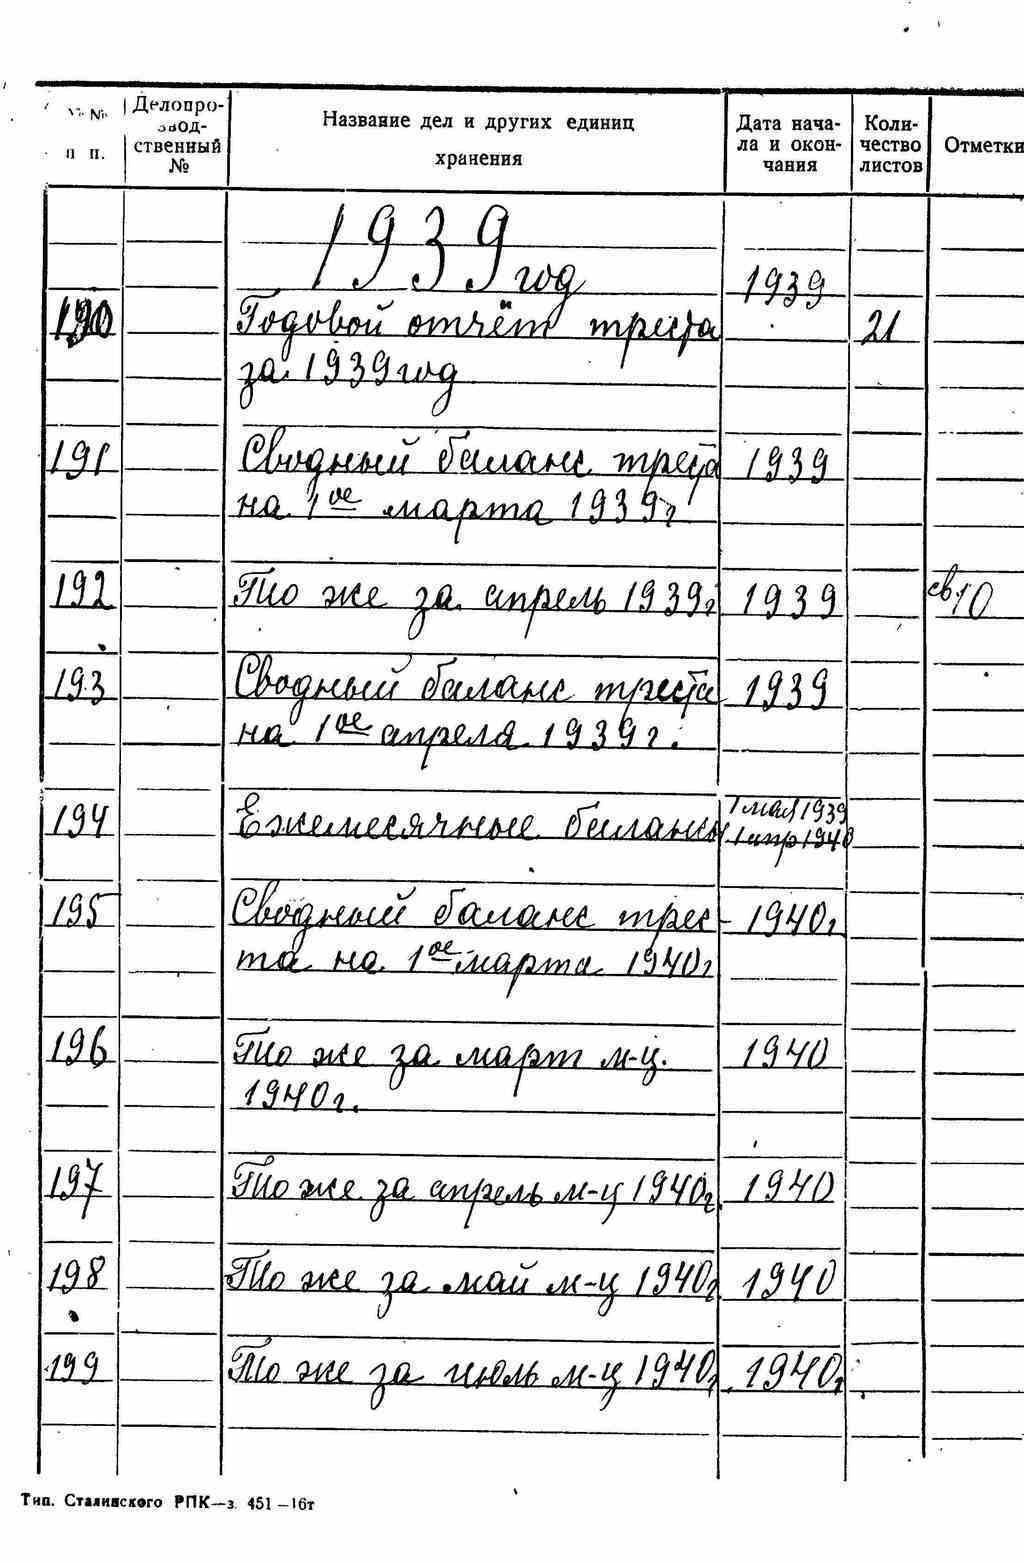 №№ п п.
Делопро-
звод-
ственный
№
Название дел и других единиц
хранения
Дата нача-
ла и окон-
чания
Коли-
чество
листов
Отметки
1939 год
1939
190 Годовой отчёт треста 21
за 1939 год
191 Сводный баланс треста 1939
на 1ое марта 1939г
192 То же за апрель 1939г 1939 св 10
193 Сводный баланс треста 1939
на 1ое апреля 1939г.
194 Ежемесячные балансы 1 мая 1939
1 апр 1940
195 Сводный баланс трес- 1940г
та на 1ое марта 1940г
196 То же за март м-ц. 1940
1940г.
197 То же за апрель м-ц 1940г. 1940
198 То же за май м-ц 1940г 1940
199 То же за июль м-ц 1940г. 1940г
Тип. Сталинского РПК—з. 451—16т